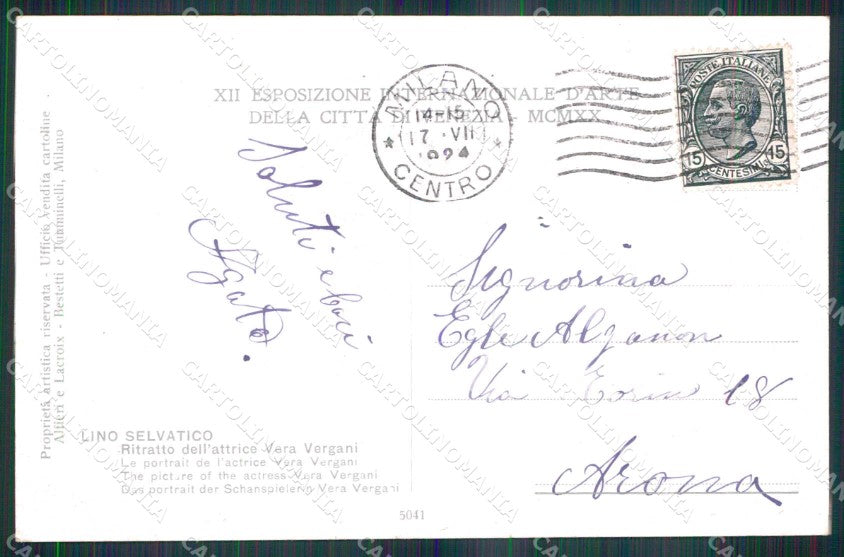 XII ESPOSIZIONE INTERNAZIONALE D'ARTE
DELLA CITTÀ DI VENEZIA - MCMXX
MILANO
14-15
17 · VII
1924
CENTRO
POSTE ITALIANE
15 15
CENTESIMI
Saluti e baci
Agata.
Signorina
Egle Alganon
Via Torino 18
Arona
Proprietà artistica riservata - Ufficio Vendita cartoline
Alfieri e Lacroix - Bestetti e Tumminelli, Milano
LINO SELVATICO
Ritratto dell'attrice Vera Vergani
Le portrait de l'actrice Vera Vergani
The picture of the actress Vera Vergani
Das portrait der Schanspielerin Vera Vergani
5041
CARTOLINOMANIA